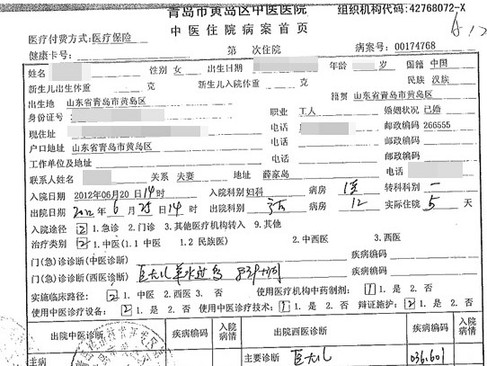 青岛市黄岛区中医医院 组织机构代码:42768072-X
中医住院病案首页
医疗付费方式:医疗保险
健康卡号: 第 次住院 病案号:00174768
姓名 性别 女 出生日期 年龄 岁 国籍 中国
新生儿出生体重 克 新生儿入院体重 克 民族 汉族
出生地 山东省青岛市黄岛区 籍贯 山东省青岛市黄岛区
身份证号 职业 工人 婚姻状况 已婚
现住址 电话 邮政编码 266555
户口地址 山东省青岛市黄岛区 电话 邮政编码
工作单位及地址 电话 邮政编码
联系人姓名 关系 夫妻 地址 薛家岛 电话
入院日期 2012年06月20日14时 入院科别 妇科 病房 转科科别 一
出院日期 2012年6月25日14时 出院科别 病房 12 实际住院 5 天
入院途径 2 1.急诊 2.门诊 3.其他医疗机构转入 9.其他
治疗类别 2 1.中医(1.1 中医 1.2 民族医) 2.中西医 3.西医
门(急)诊诊断(中医诊断) 疾病编码
门(急)诊诊断(西医诊断) 巨大儿 疾病编码
实施临床路径: 2 1.中医 2.西医 3.否 使用医疗机构中药制剂: 1.是 2.否
使用中医诊疗设备: 2 1.是 2.否 使用中医诊疗技术: 1 1.是 2.否 辩证施护: 2 1.是 2.否
出院中医诊断 疾病编码 入院病情 出院西医诊断 疾病编码 入院病情
主要诊断 巨大儿 036.601